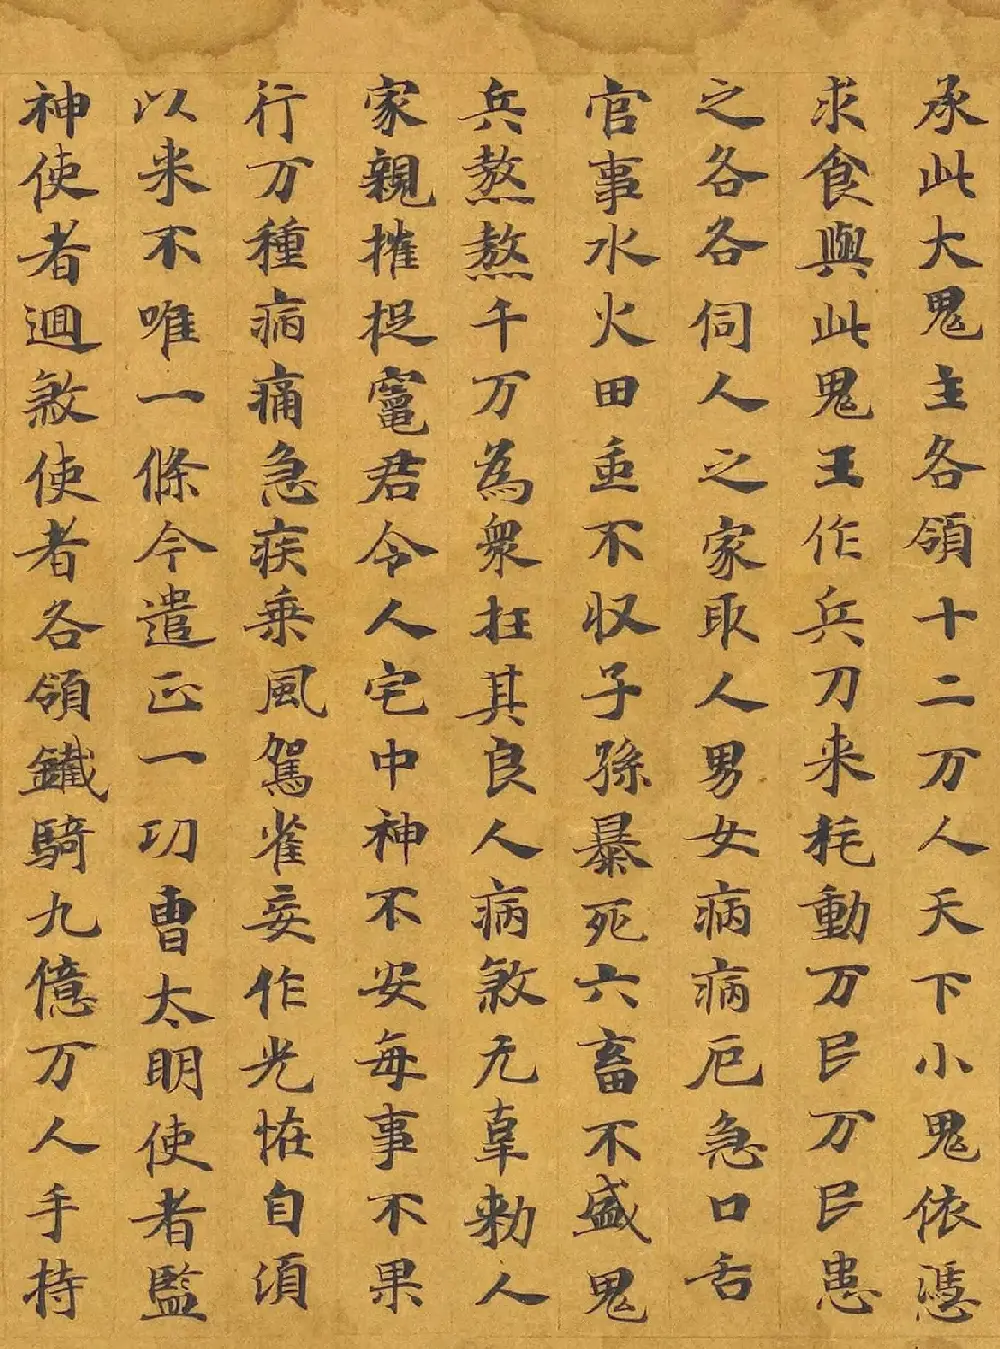 承此大鬼主各領十二万人天下小鬼依憑
求食與此鬼王作兵刀来耗動万民万民患
之各各伺人之家取人男女病病厄急口舌
官事水火田垂不収子孫暴死六畜不盛鬼
兵熬熬千万為衆抂其良人病煞无辜勑人
家親摧捉竈君令人宅中神不安每事不果
行万種病痛急疾乗風駕雀妄作光恠自須
以来不唯一條今遣正一功曹太明使者監
神使者迴煞使者各領鐵騎九億万人手持